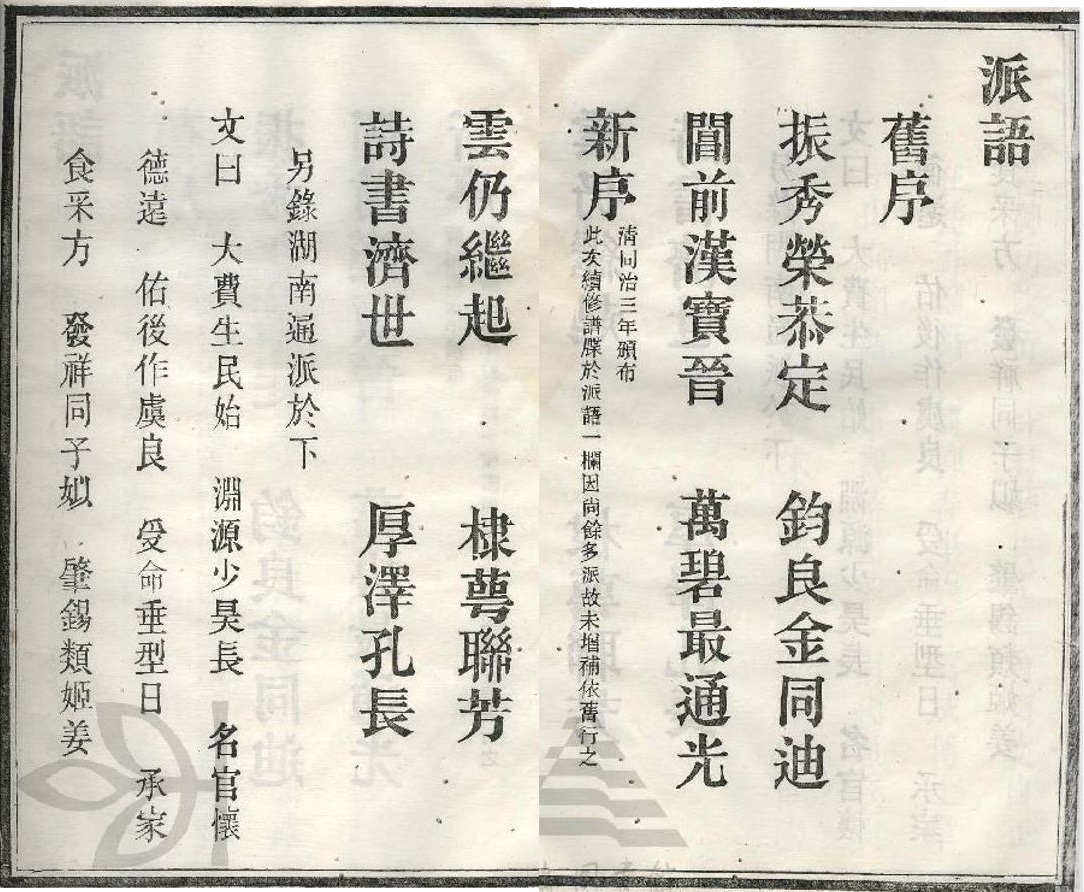 派語
舊序
振秀榮恭定 鈞良金同迪
閶前漢寶晉 萬碧最通光
新序 清同治三年頒布
此次續修譜牒於派語一欄因尚餘多派故未增補依舊行之
雲仍繼起 棣萼聯芳
詩書濟世 厚澤孔長
另錄湖南通派於下
文曰 大費生民始 淵源少昊長 名官懷
德遠 佑後作虞良 受命垂型日 承家
食采方 發祥同子姒 肇錫類姬姜